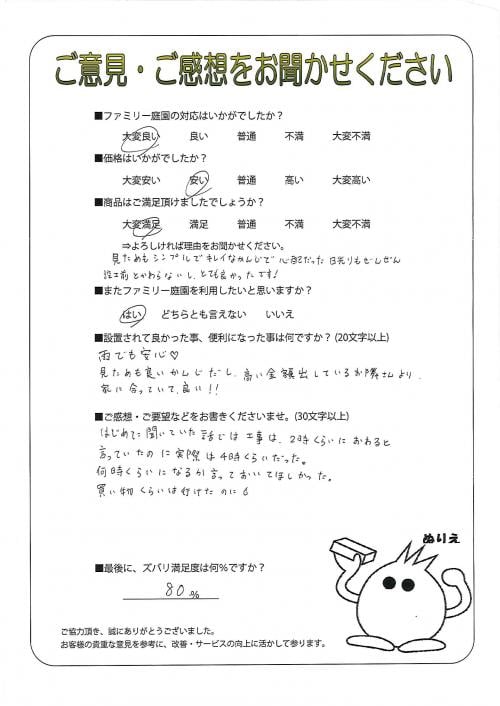 ご意見・ご感想をお聞かせください
■ファミリー庭園の対応はいかがでしたか？
大変良い 良い 普通 不満 大変不満
■価格はいかがでしたか？
大変安い 安い 普通 高い 大変高い
■商品はご満足頂けましたでしょうか？
大変満足 満足 普通 不満 大変不満
⇒よろしければ理由をお聞かせください。
見ためもシンプルでキレイなかんじで心配だった日光りもぜんぜん
設工前とかわらないし、とても良かったです！
■またファミリー庭園を利用したいと思いますか？
はい どちらとも言えない いいえ
■設置されて良かった事、便利になった事は何ですか？(20文字以上)
雨でも安心♡
見ためも良いかんじだし、高い金額出しているお隣さんより、
家に合っていて、良い！！
■ご感想・ご要望などをお書きくださいませ。(30文字以上)
はじめに聞いていた話では工事は、2時くらいにおわると
言っていたのに実際は4時くらいだった。
何時くらいになるか言っておいてほしかった。
買い物くらいは行けたのに
ぬりえ
■最後に、ズバリ満足度は何％ですか？
80％
ご協力頂き、誠にありがとうございました。
お客様の貴重な意見を参考に、改善・サービスの向上に活かして参ります。